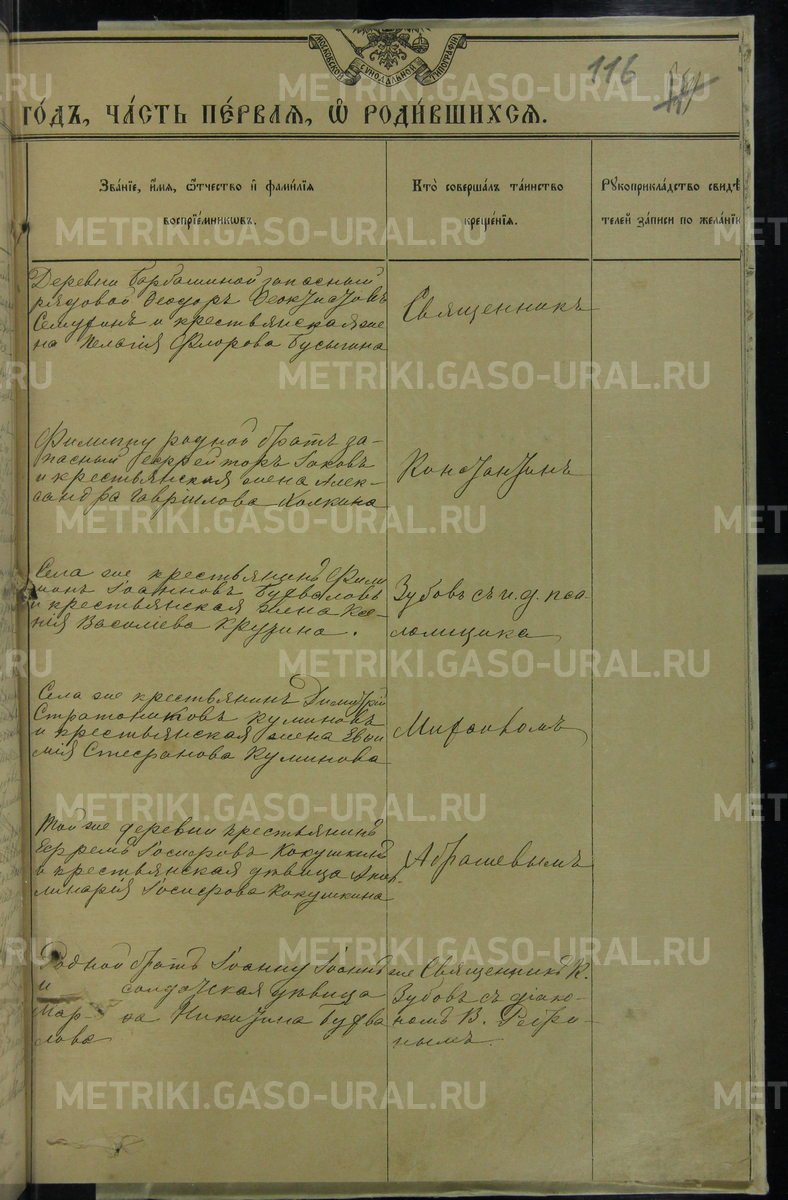 МОСКОВСКОЙ СѴНОДАЛЬНОЙ ТИПОГРАФІИ
116
го́дъ, ча́сть пе́рваѧ, ѡ҆ роди́вшихсѧ.
Зва́ніе, и҆́мѧ, ѻ҆́тчество и҆ фами́лїѧ
воспрїе́мникѡвъ.
Кто̀ соверша́лъ та́инство
креще́нїѧ.
Рꙋкоприкла́дство свидѣ́
телей за́писи по жела́нїю
Деревни Барбашиной запасный
рядовой Ѳеодоръ Ѳеоктистовъ
и крестьянская же
на Пелагія Флорова Бусыгина
Священникъ
Филиппу родной братъ за-
пасный ефрейторъ Іаковъ
и крестьянская жена Алек-
сандра Гаврилова Колкина
Константинъ
Села же крестьянинъ Фили
монъ Іоанновъ Будваловъ
и крестьянская жена Ксе-
нія Васильева Крузина.
Зубовъ съ и. д. пса
ломщика
Села же крестьянинъ Димитрій
Стратониковъ Куминовъ
и крестьянская жена Евѳи
мія Стефанова Куминова
Той же деревни крестьянинъ
Ефремъ Іосифовъ Кокушкинъ
и крестьянская дѣвица Апол-
линарія Іосифова Кокушкина
Абрашевымъ
Родной братъ Іоанну Іоаннъ
и солдатская дѣвица
Мар- ѳа Никитина Будва
лова
же Священникъ К.
Зубовъ съ діако-
номъ В.
METRIKI.GASO-URAL.RU